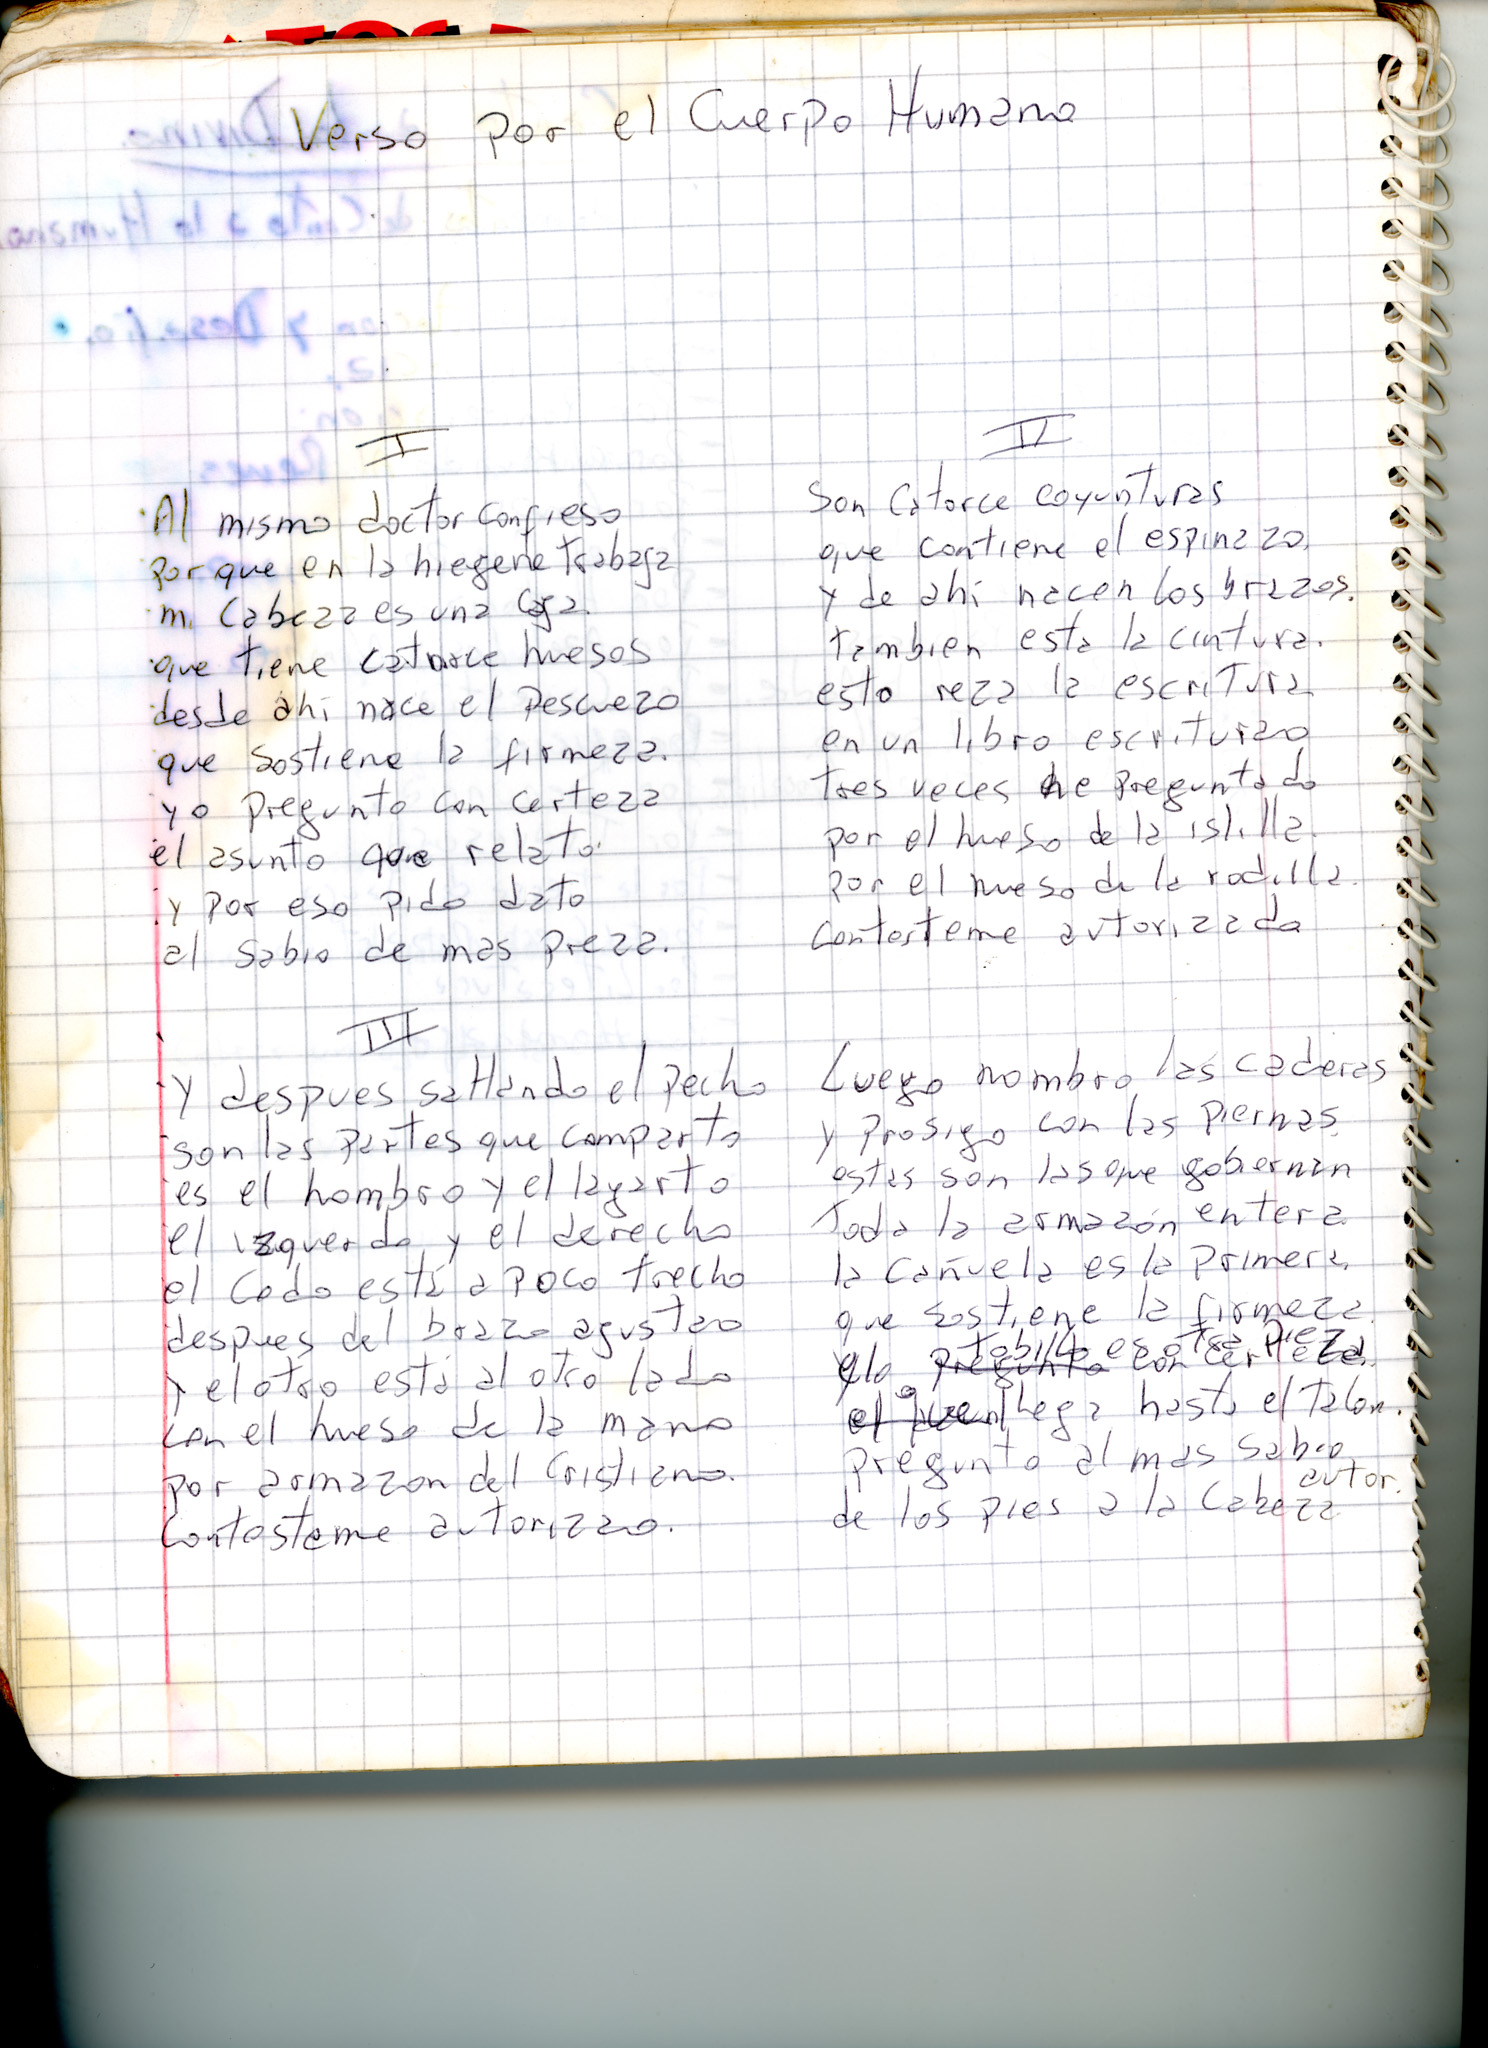 Verso por el Cuerpo Humano
I
Al mismo doctor confieso
porque en la hiegene trabaja
mi Cabeza es una Caja.
que tiene catorce huesos
desde ahi nace el Pescuezo
que sostiene la firmeza.
yo pregunto con certeza
el asunto que relato.
y por eso pido dato
al sabio de mas preza.
II
Son Catorce coyunturas
que contiene el espinazo.
y de ahi nacen los brazos.
tambien esta la cintura.
esto reza la escritura
en un libro escriturao
tres veces he preguntado
por el hueso de la islilla.
por el hueso de la rodilla.
contesteme autorizada
III
Y despues saltando el pecho
son las partes que comparto
es el hombro y el lagarto
el izquerdo y el derecho
el Codo está a poco trecho
despues del brazo agustao
y el otro está al otro lado
con el hueso de la mano
por armazon del Cristiano.
Contesteme autorizao.
Luego nombro las caderas
y prosigo con las piernas.
estas son las que gobiernan
toda la armazón entera
la Cañuela es la primera
que sostiene la firmeza
tobillo es otra pieza
y lo pregunto con certeza.
llega hasta el talon.
pregunto al mas sabio
autor.
de los pies a la Cabeza